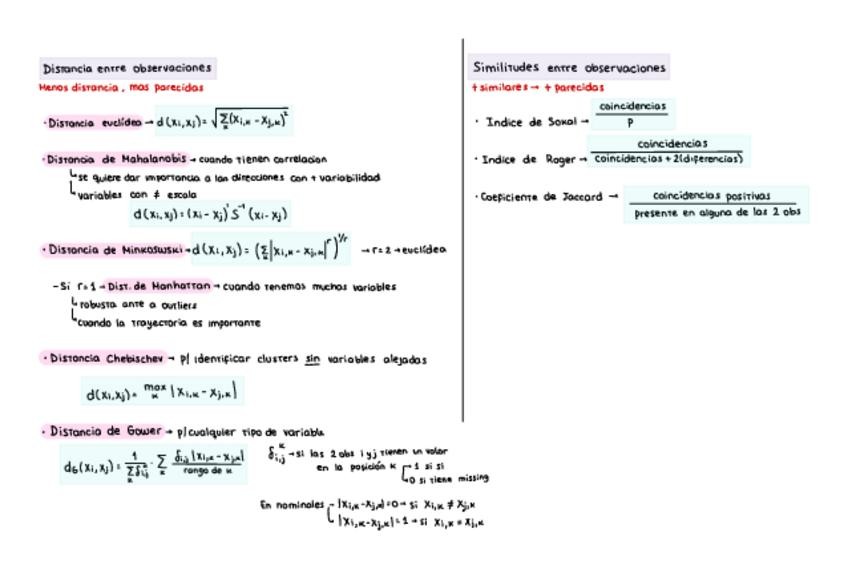 Distancia entre observaciones
Menos distancia, mas parecidas
· Distancia euclídea → d(xi,xj) = √∑ₖ(xi,k - xj,k)²
· Distancia de Mahalanobis → cuando tienen correlacion
↳ se quiere dar importancia a las direcciones con + variabilidad
↳ variables con ≠ escala
d(xi,xj) = (xi - xj)' S⁻¹ (xi - xj)
· Distancia de Minkowski → d(xi,xj) = (∑ₖ|xi,k - xj,k|^r)^1/r → r=2 → euclídea
- Si r=1 → Dist. de Manhattan → cuando tenemos muchas variables
↳ robusta ante a outliers
↳ cuando la trayectoria es importante
· Distancia Chebischev → p/ identificar clusters sin variables alejadas
d(xi,xj) = max k |xi,k - xj,k|
· Distancia de Gower → p/cualquier tipo de variable
dG(xi,xj) = 1/∑ₖδᵏi,j · ∑ₖ δi,j |xi,k - xj,k| / rango de k
δᵏi,j → si las 2 obs i y j tienen un valor
en la posición k
1 si si
0 si tiene missing
En nominales
|xi,k - xj,k| = 0 → si xi,k ≠ xj,k
|xi,k - xj,k| = 1 → si xi,k = xj,k
Similitudes entre observaciones
+ similares → + parecidas
· Indice de Sokal → coincidencias / p
· Indice de Roger → coincidencias / coincidencias + 2(diferencias)
· Coeficiente de Jaccard → coincidencias positivas / presente en alguna de las 2 obs